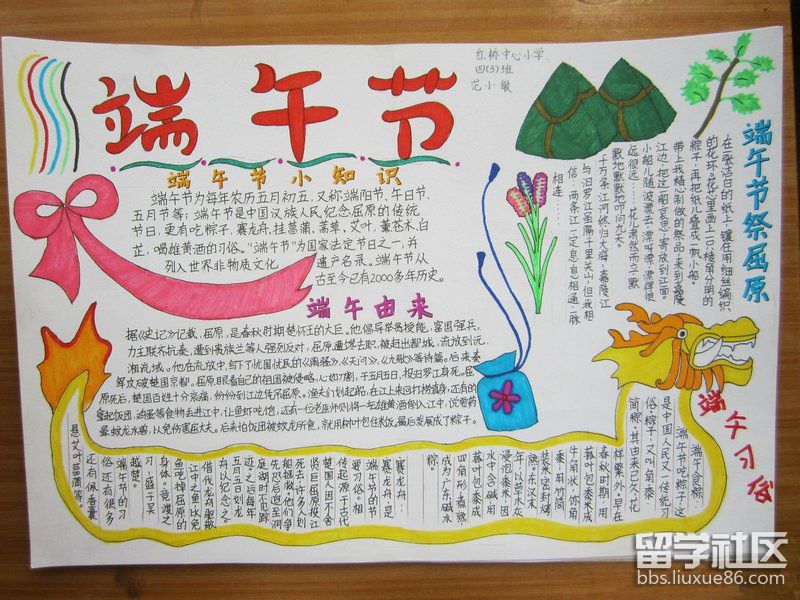 端午节
红桥中心小学
四(3)班
范小敏
端午节小知识
端午节为每年农历五月初五,又称端阳节、午日节、
五月节等;端午节是中国汉族人民纪念屈原的传统
节日,更有吃粽子,赛龙舟,挂菖蒲,蒿草,艾叶,薰苍术,白
芷,喝雄黄酒的习俗。“端午节”为国家法定节日之一,并
列入世界非物质文化遗产名录。端午节从
古至今已有2000多年历史。
端午由来
据《史记》记载,屈原,是春秋时期楚怀王的大臣。他倡导举贤授能,富国强兵,
力主联齐抗秦,遭到贵族兰等人强烈反对,屈原遭馋去职,被赶出都城,流放到沅,
湘流域。他在流放中,写下了忧国忧民的《离骚》、《天问》、《九歌》等诗篇。后来秦
军攻破楚国京都。屈原眼看自己的祖国被侵略,心如刀割,于五月五日,投汨罗江身死。屈
原死后,楚国百姓十分哀痛,纷纷到江边凭吊屈原。渔夫们划起船,在江上来回打捞真身,还有的
拿起饭团、鸡蛋等食物丢进江中,让鱼虾吃饱,还有一位老医师则将一坛雄黄酒倒入江中,说要药
晕蛟龙水兽,以免伤害屈大夫。后来怕饭团被蛟龙所食,就用树叶包住米饭,最后发展成了粽子。
端午节祭屈原
在一张洁白的纸上,镶在用细丝编织
的花环。花心里画上一口棱角分明的
粽子,再把纸儿叠成一帆小船。
带上我精心制做的祭品,来到嘉陵
江边,把这一船哀思寄放到江面。
小船儿随波漂去,漂呀漂,漂得很
远很远……花儿肃然而立,默
默地默默地叩问九天。
千万条江河终归大海,嘉陵江
与汨罗江虽隔千里关山,但我相
信:两条江一定息息相通一脉
相连……
端午习俗
端午食粽:
端午节吃粽子,这
是中国人民又一传统习
俗。粽子,又叫“角黍”
“筒粽”。其由来已久,花
样繁多。早在
春秋时期,用
菰叶包黍米成
牛角状,称“角
黍”;用竹筒
装米密封烤
熟。东汉末
年,以草木灰
浸泡黍米,因
水中含碱,用
菰叶包黍米成
四角形,煮熟
成为广东碱水
粽。
赛龙舟:
赛龙舟,是
端午节的主
要习俗。相
传起源于古代
楚国人因不舍
贤臣屈原投江
死去,许多人划
船拯救。他们争
先恐后,追至洞
庭湖时不见踪
迹。之后每年
五月五日划龙
舟以纪念之。
借划龙舟驱散
江中之鱼,以免
鱼吃掉屈原的
身体。竞渡之
习,盛于吴
越楚。
端午节的习
俗还有很多
还有佩香囊
悬艾叶菖蒲等。
留学社区
bbs.liuxue86.com